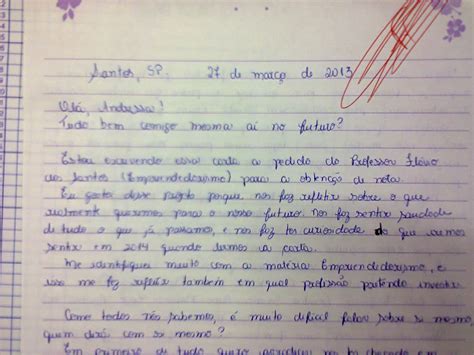 Santos, SP. 27 de março de 2013
Olá, Andressa!
Tudo bem comigo mesma aí no futuro?
Estou escrevendo essa carta a pedido do Professor Flávio
dos Santos (Empreendedorismo) para a obtenção de nota.
Eu gosto desse projeto porque nos faz refletir sobre o que
realmente queremos para o nosso futuro nos faz sentir saudade
de tudo o que já passamos, e nos faz ter curiosidade do que vamos
sentir em 2014 quando lermos a carta.
Me identifiquei muito com a matéria Empreendedorismo, e
isso me faz refletir também em qual profissão pretendo investir
Como todos nós sabemos, é muito difícil falar sobre si mesmo,
quem dirá com si mesmo?
Em primeiro de tudo quero